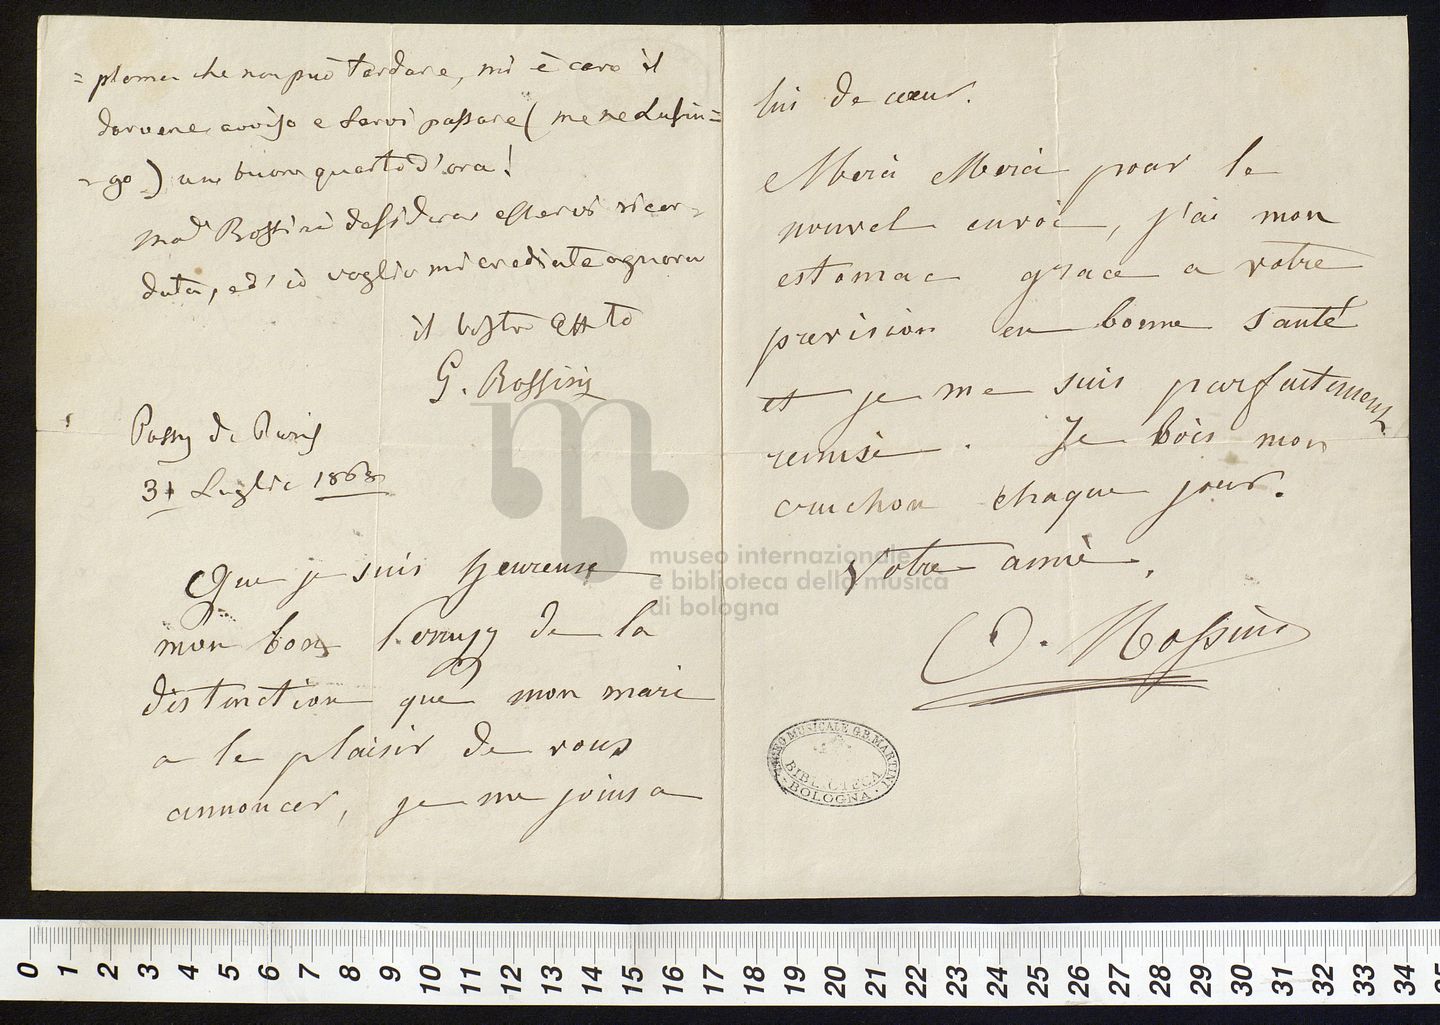 =ploma che non può tardare, mi è caro il
darvene avviso e farvi passare (me ne lusin=
=go) un buon quarto d'ora!
Mad Rossini desidera esservi ricor=
data, ed io voglio mi crediate ognora
il Vostro Affto
G. Rossini
Passy de Paris
31 Luglio 1868
Que je suis heureuse
mon bon de la
distinction que mon mari
a le plaisir de vous
annoncer, je me joins a
lui de cœur.
Merci Merci pour le
nouvel envoi, j'ai mon
estomac grace a votre
prevision en bonne santé
et je me suis parfaitement
remise. Je bois mon
cruchon chaque jour.
Votre amie,
O. Rossini
LICEO MUSICALE G.B. MARTINI
BIBLIOTECA
BOLOGNA
museo internazionale
e biblioteca della musica
di bologna
0 1 2 3 4 5 6 7 8 9 10 11 12 13 14 15 16 17 18 19 20 21 22 23 24 25 26 27 28 29 30 31 32 33 34 35